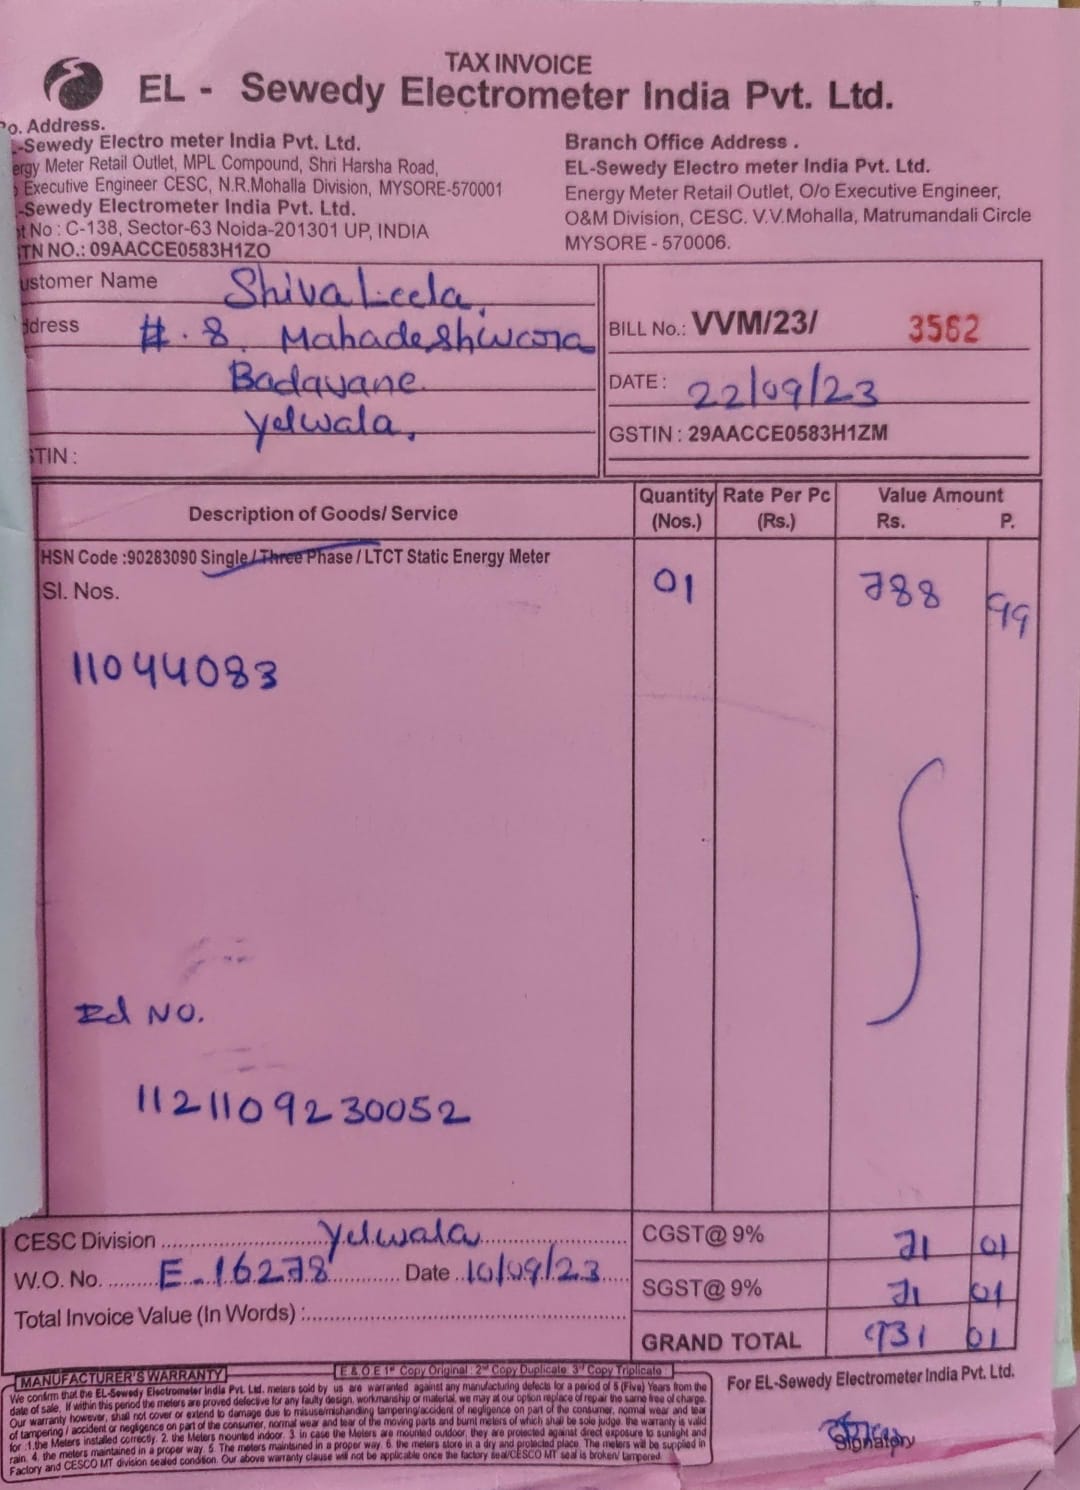 TAX INVOICE
EL - Sewedy Electrometer India Pvt. Ltd.
o. Address.
-Sewedy Electro meter India Pvt. Ltd.
ergy Meter Retail Outlet, MPL Compound, Shri Harsha Road,
Executive Engineer CESC, N.R.Mohalla Division, MYSORE-570001
-Sewedy Electrometer India Pvt. Ltd.
t No : C-138, Sector-63 Noida-201301 UP, INDIA
TN NO.: 09AACCE0583H1ZO
Branch Office Address .
EL-Sewedy Electro meter India Pvt. Ltd.
Energy Meter Retail Outlet, O/o Executive Engineer,
O&M Division, CESC. V.V.Mohalla, Matrumandali Circle
MYSORE - 570006.
ustomer Name Shivaleela,
ddress #. 8, Mahadeshwara
Badavane.
Yelwala,
STIN :
BILL No.: VVM/23/ 3562
DATE : 22/09/23
GSTIN : 29AACCE0583H1ZM
Description of Goods/ Service Quantity (Nos.) Rate Per Pc (Rs.) Value Amount Rs. P.
HSN Code :90283090 Single / Three Phase / LTCT Static Energy Meter
Sl. Nos. 01 788 99
11044083
Ed NO.
1121109230052
CESC Division Yelwala CGST@ 9% 71 01
W.O. No. E-16278 Date 10/09/23 SGST@ 9% 71 01
Total Invoice Value (In Words) : GRAND TOTAL 931 01
MANUFACTURER'S WARRANTY E & O E 1st Copy Original : 2nd Copy Duplicate 3rd Copy Triplicate :
We confirm that the EL-Sewedy Electrometer India Pvt. Ltd. meters sold by us are warranted against any manufacturing defects for a period of 5 (Five) Years from the
date of sale. If within this period the meters are proved defective for any faulty design, workmanship or material, we may at our option replace of repair the same free of charge.
Our warranty however, shall not cover or extend to damage due to misuse/mishandling tampering/accident of negligence on part of the consumer, normal wear and tear
of tampering / accident or negligence on part of the consumer, normal wear and tear of the moving parts and burnt meters of which shall be sole judge. the warranty is valid
for :1.the Meters installed correctly. 2. the Meters mounted indoor. 3. in case the Meters are mounted outdoor, they are protected against direct exposure to sunlight and
rain. 4. the meters maintained in a proper way. 5. The meters maintained in a proper way. 6. the meters store in a dry and protected place. The meters will be supplied in
Factory and CESCO MT division sealed condition. Our above warranty clause will not be applicable once the factory seal/CESCO MT seal is broken/ tampered.
For EL-Sewedy Electrometer India Pvt. Ltd.
Signatory